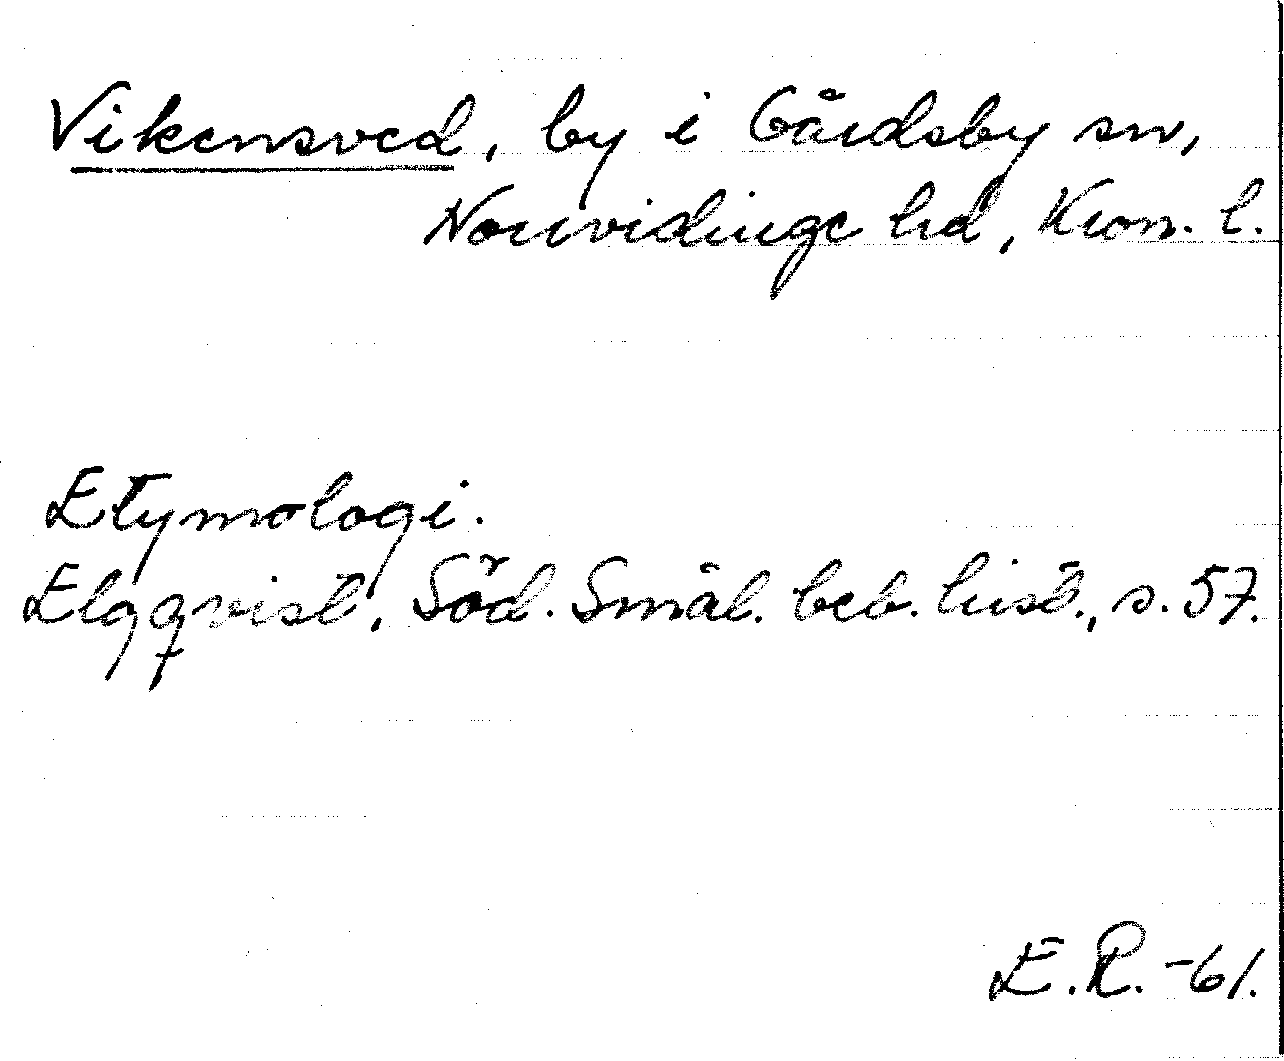 Vikensved, by i Gårdsby sn,
Norrvidinge hd, Kron. l.
Etymologi.
Elgqvist, Söd. Smål. beb. hist., s. 57.
E.R. -61.